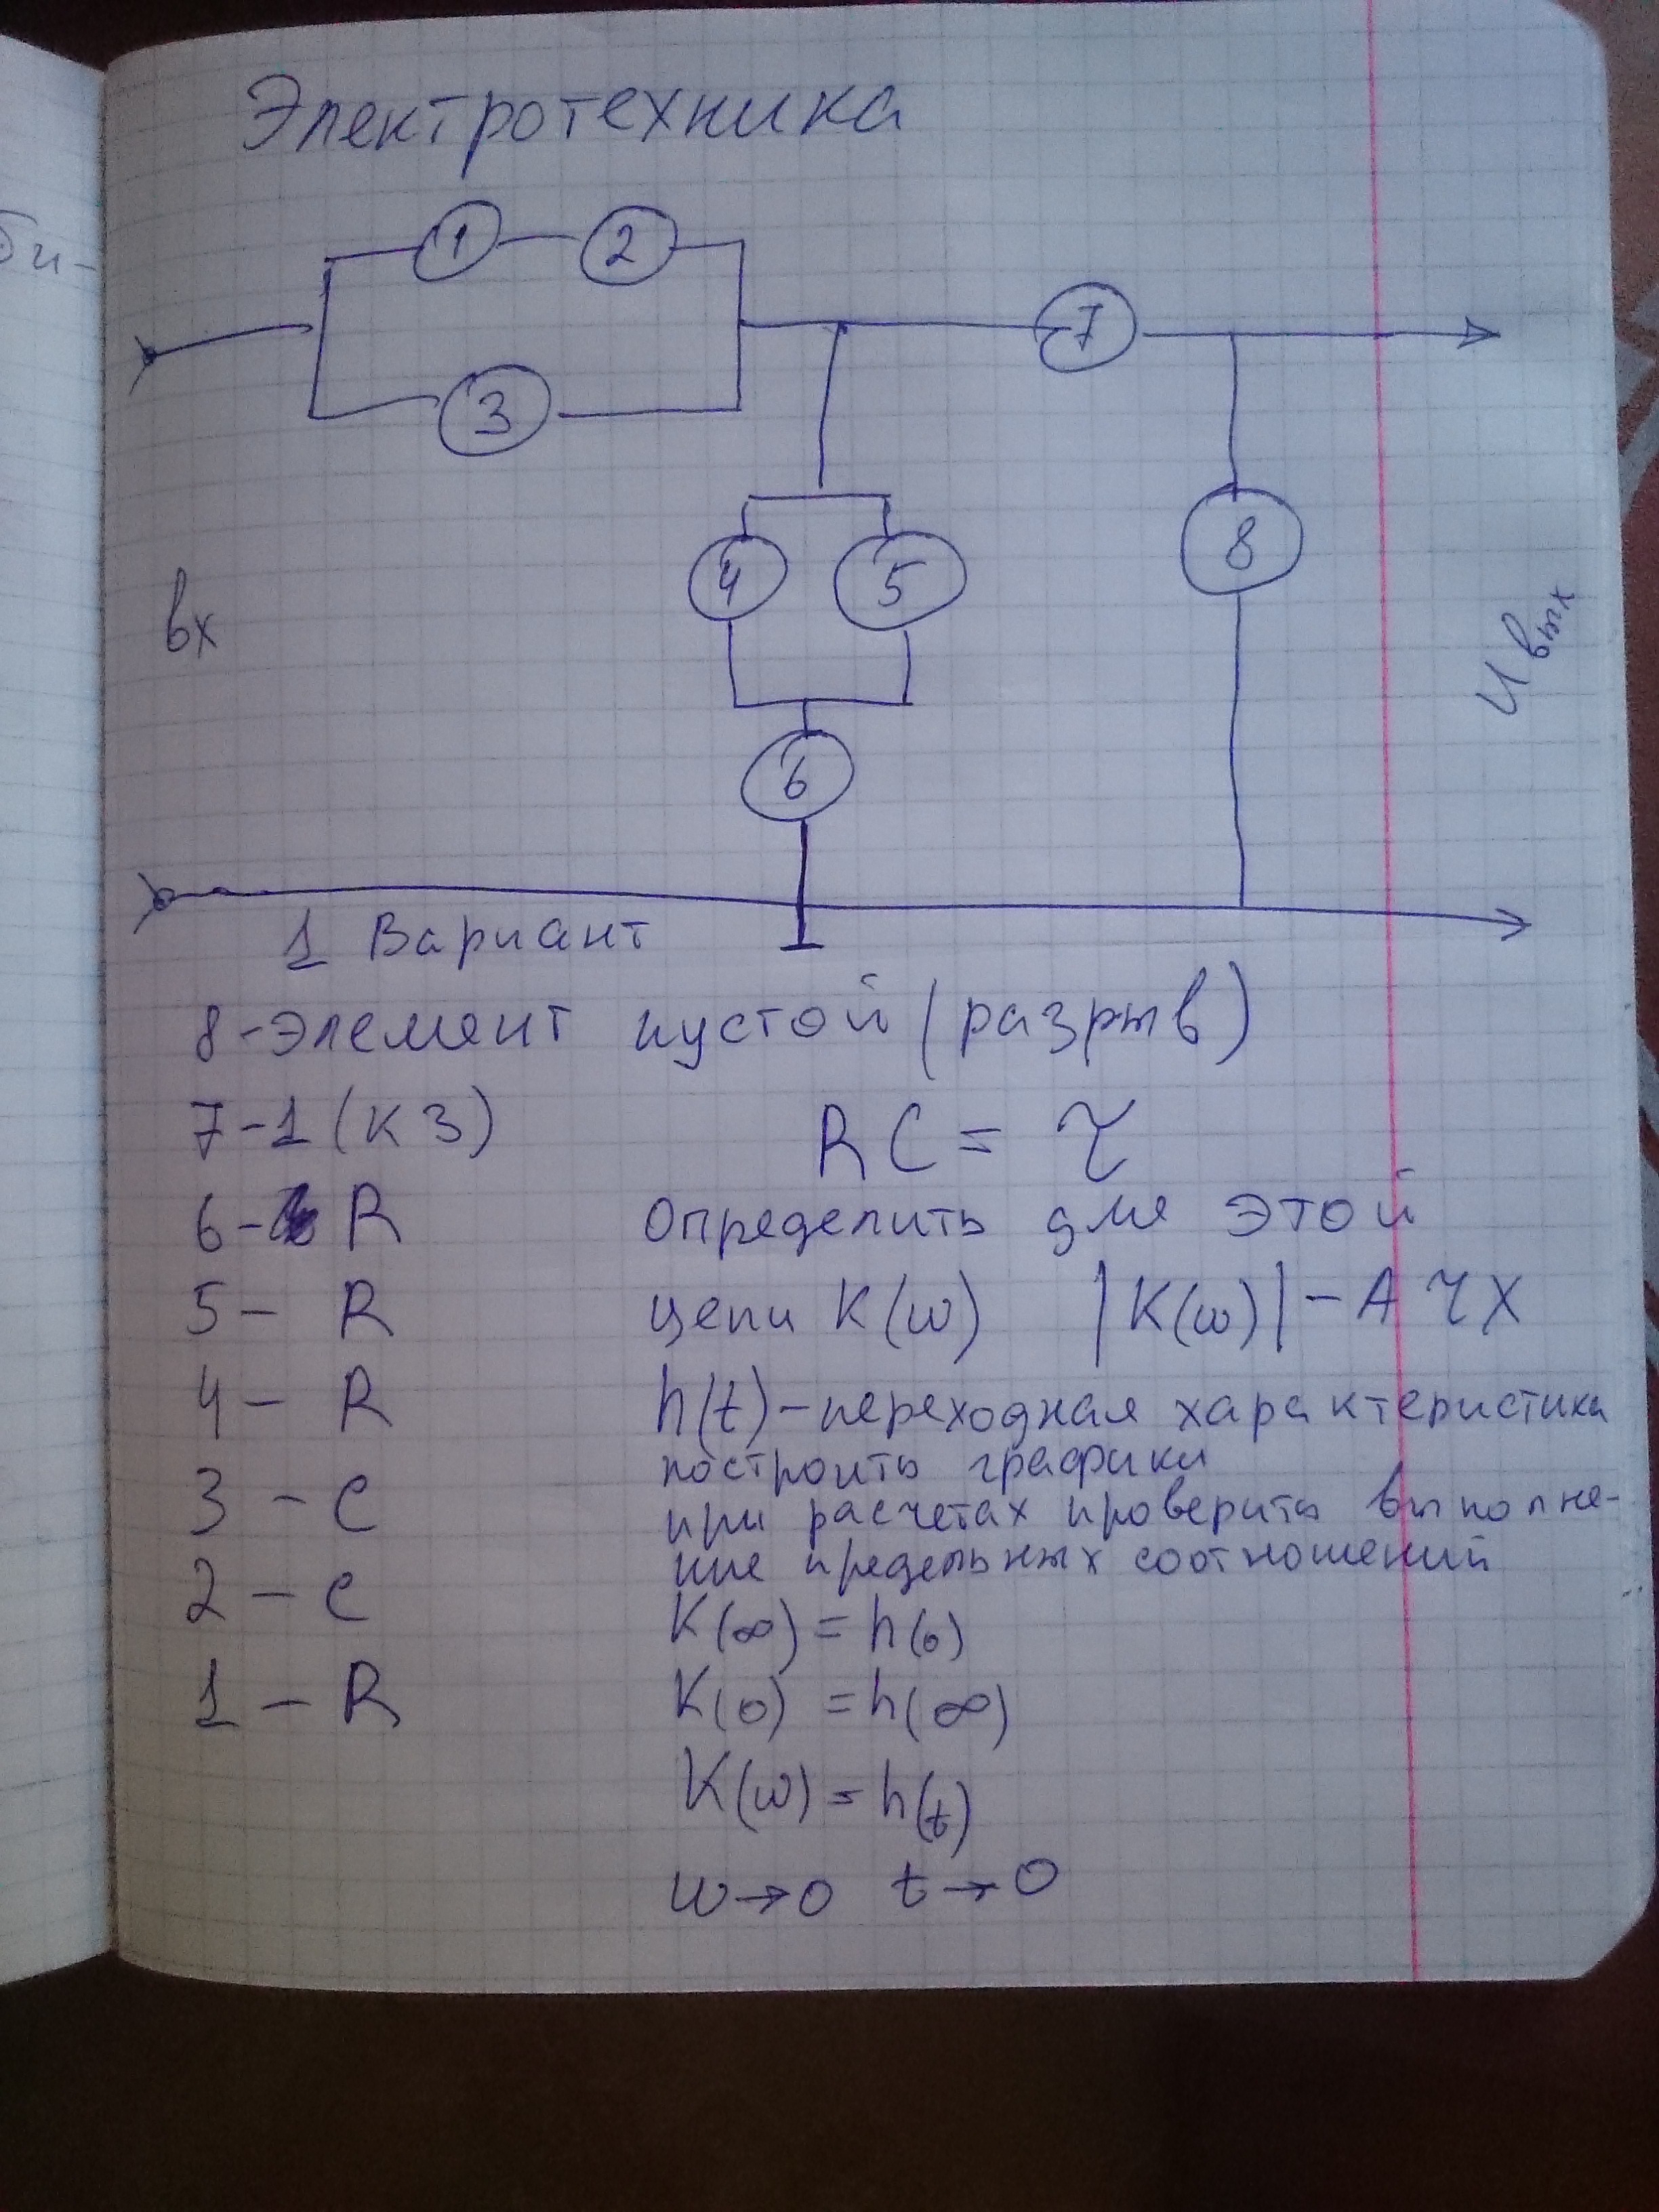 Электротехника
1
2
3
7
4
5
8
6
вх
U вых
1 Вариант
8-элемент пустой (разрыв)
7-1 (КЗ)
RC = τ
6- R
Определить для этой
5 - R
цепи K(ω) |K(ω)| - АЧХ
4 - R
h(t) - переходная характеристика
построить графики
3 - C
при расчетах проверить выполне-
ние предельных соотношений
2 - C
K(∞) = h(0)
1 - R
K(0) = h(∞)
K(ω) = h(t)
ω→0 t→0